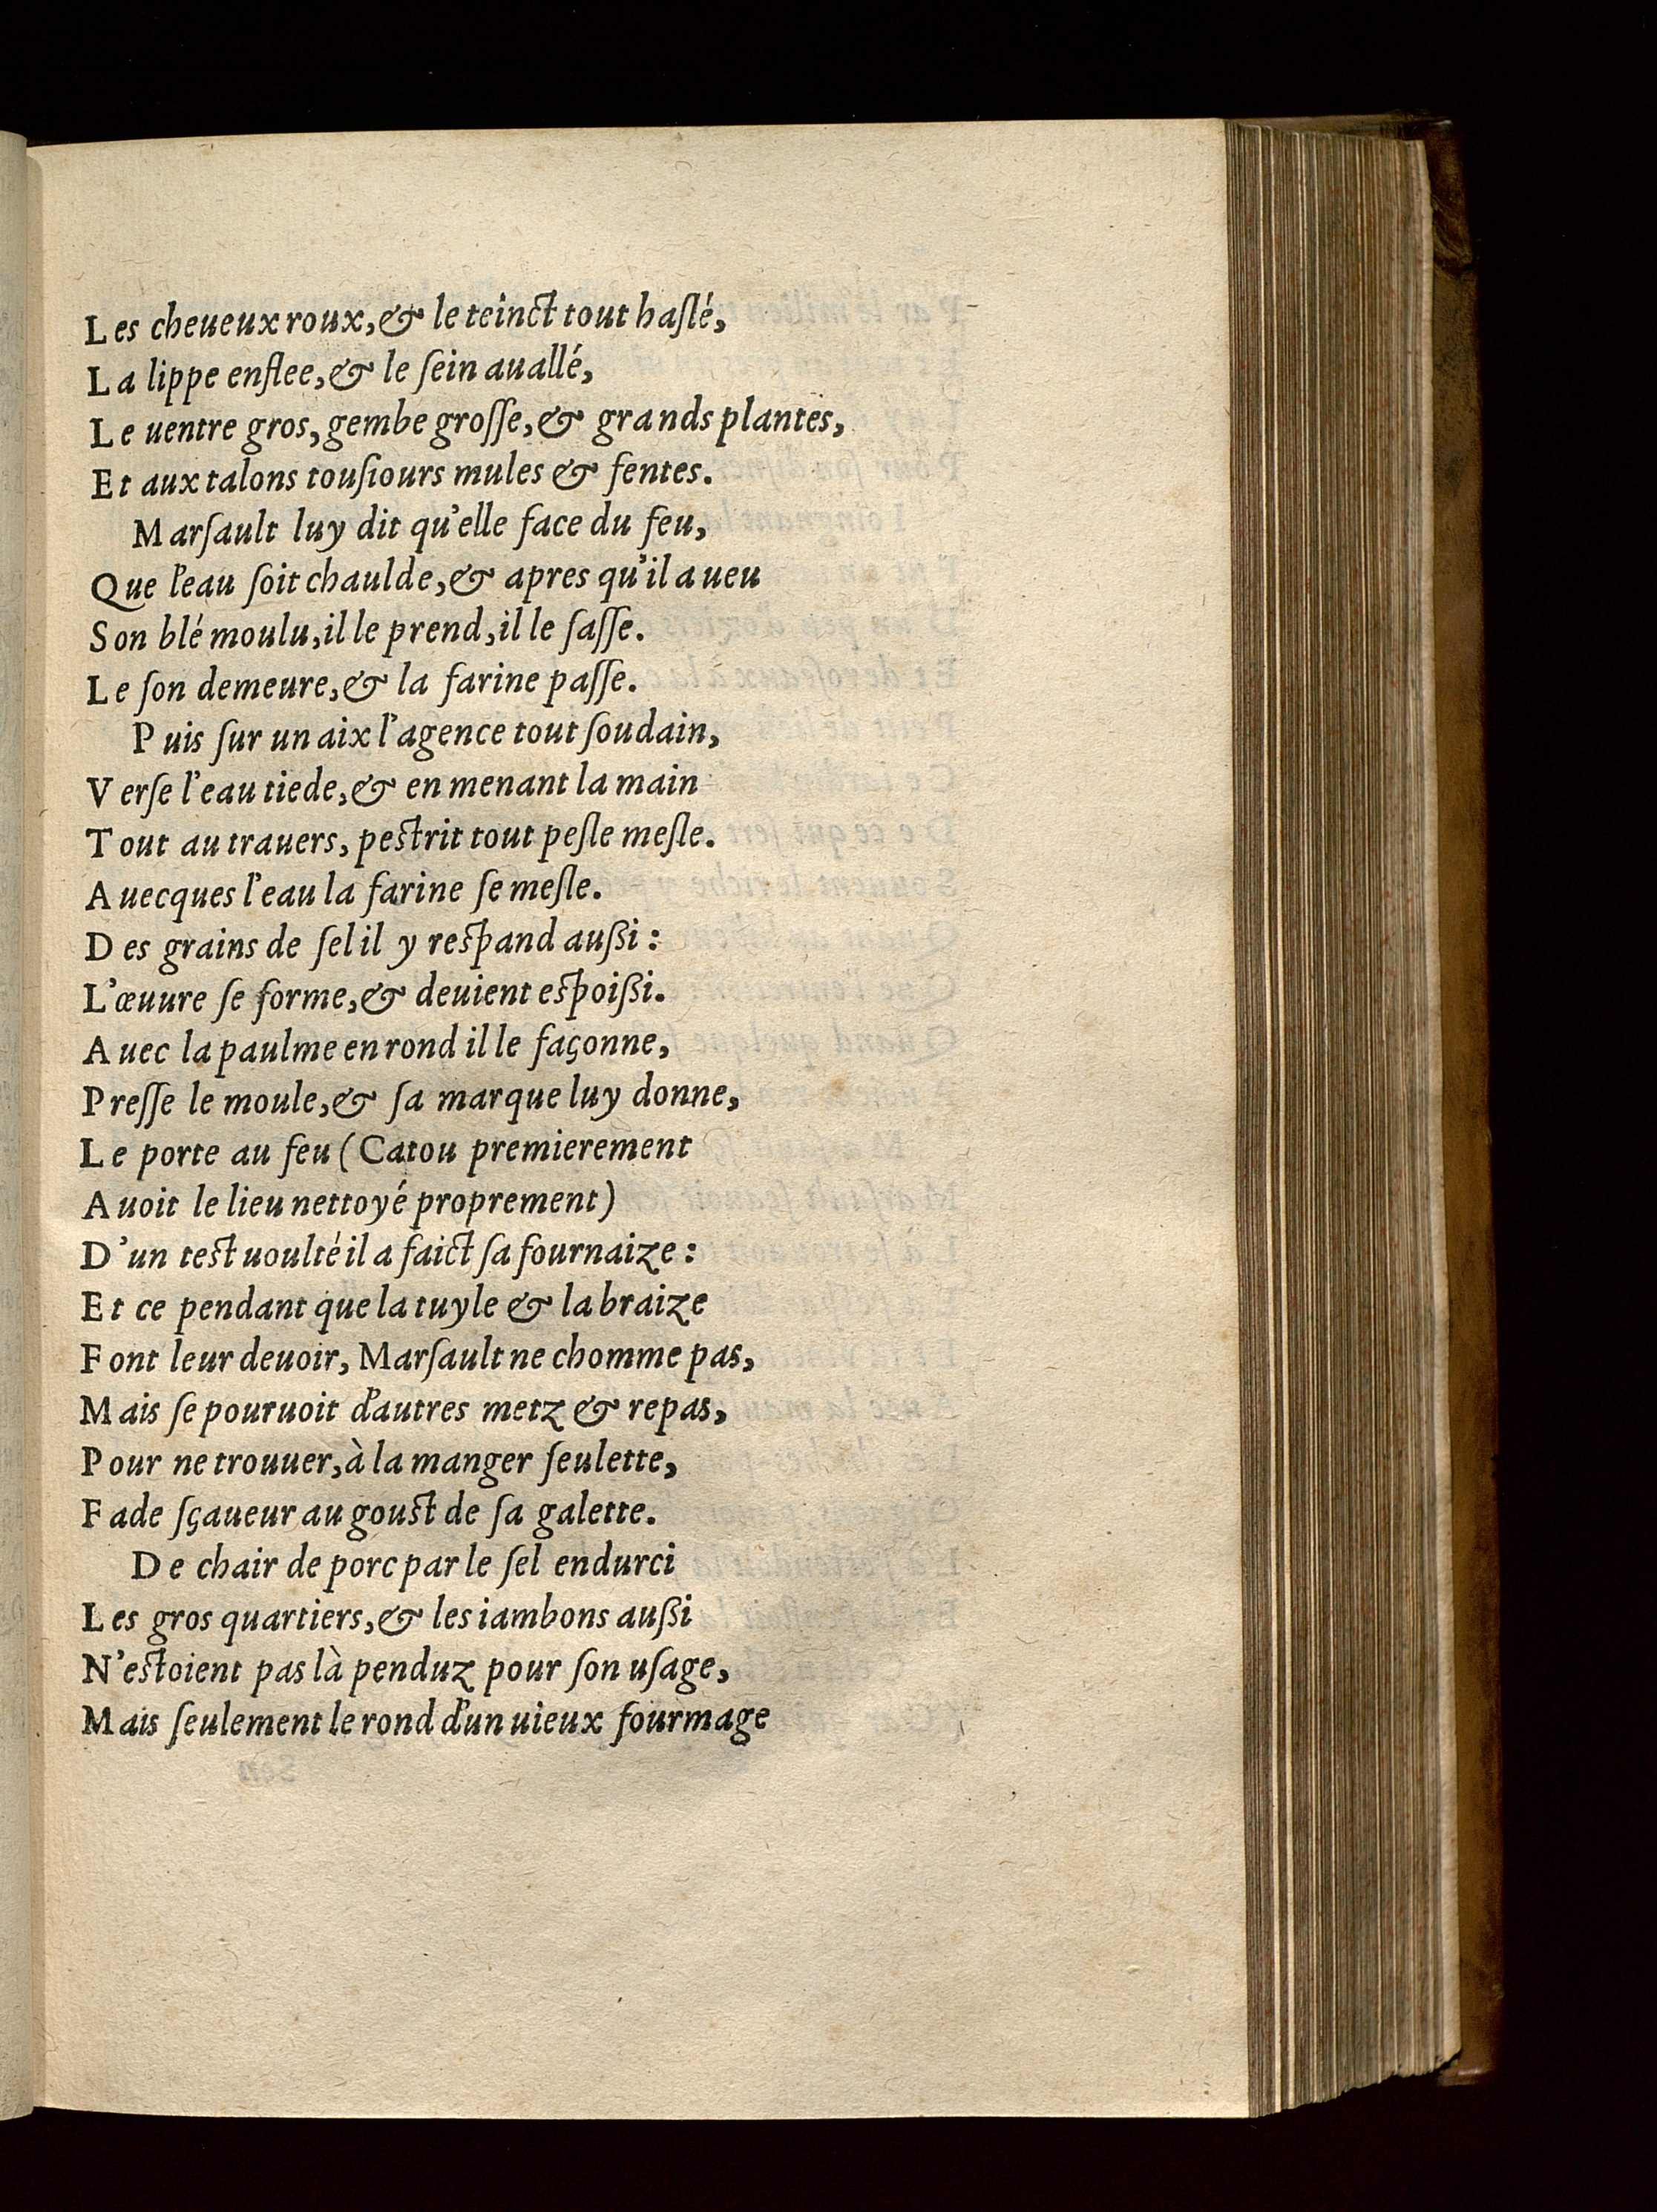 Les cheueux roux, & le teinct tout haſlé,
La lippe enflee, & le ſein auallé,
Le uentre gros, gembe groſſe, & grands plantes,
Et aux talons touſiours mules & fentes.
Marſault luy dit qu'elle face du feu,
Que l'eau ſoit chaulde, & apres qu'il a ueu
Son blé moulu, il le prend, il le ſaſſe.
Le ſon demeure, & la farine paſſe.
Puis ſur un aix l'agence tout ſoudain,
Verſe l'eau tiede, & en menant la main
Tout au trauers, peſtrit tout peſle meſle.
Auecques l'eau la farine ſe meſle.
Des grains de ſel il y reſpand außi :
L'œuure ſe forme, & deuient eſpoißi.
Auec la paulme en rond il le façonne,
Preſſe le moule, & ſa marque luy donne,
Le porte au feu (Catou premierement
Auoit le lieu nettoyé proprement)
D'un teſt uoulté il a faict ſa fournaize :
Et ce pendant que la tuyle & la braize
Font leur deuoir, Marſault ne chomme pas,
Mais ſe pouruoit d'autres metz & repas,
Pour ne trouuer, à la manger ſeulette,
Fade ſçaueur au gouſt de ſa galette.
De chair de porc par le ſel endurci
Les gros quartiers, & les iambons außi
N'eſtoient pas là penduz pour ſon uſage,
Mais ſeulement le rond d'un uieux fourmage